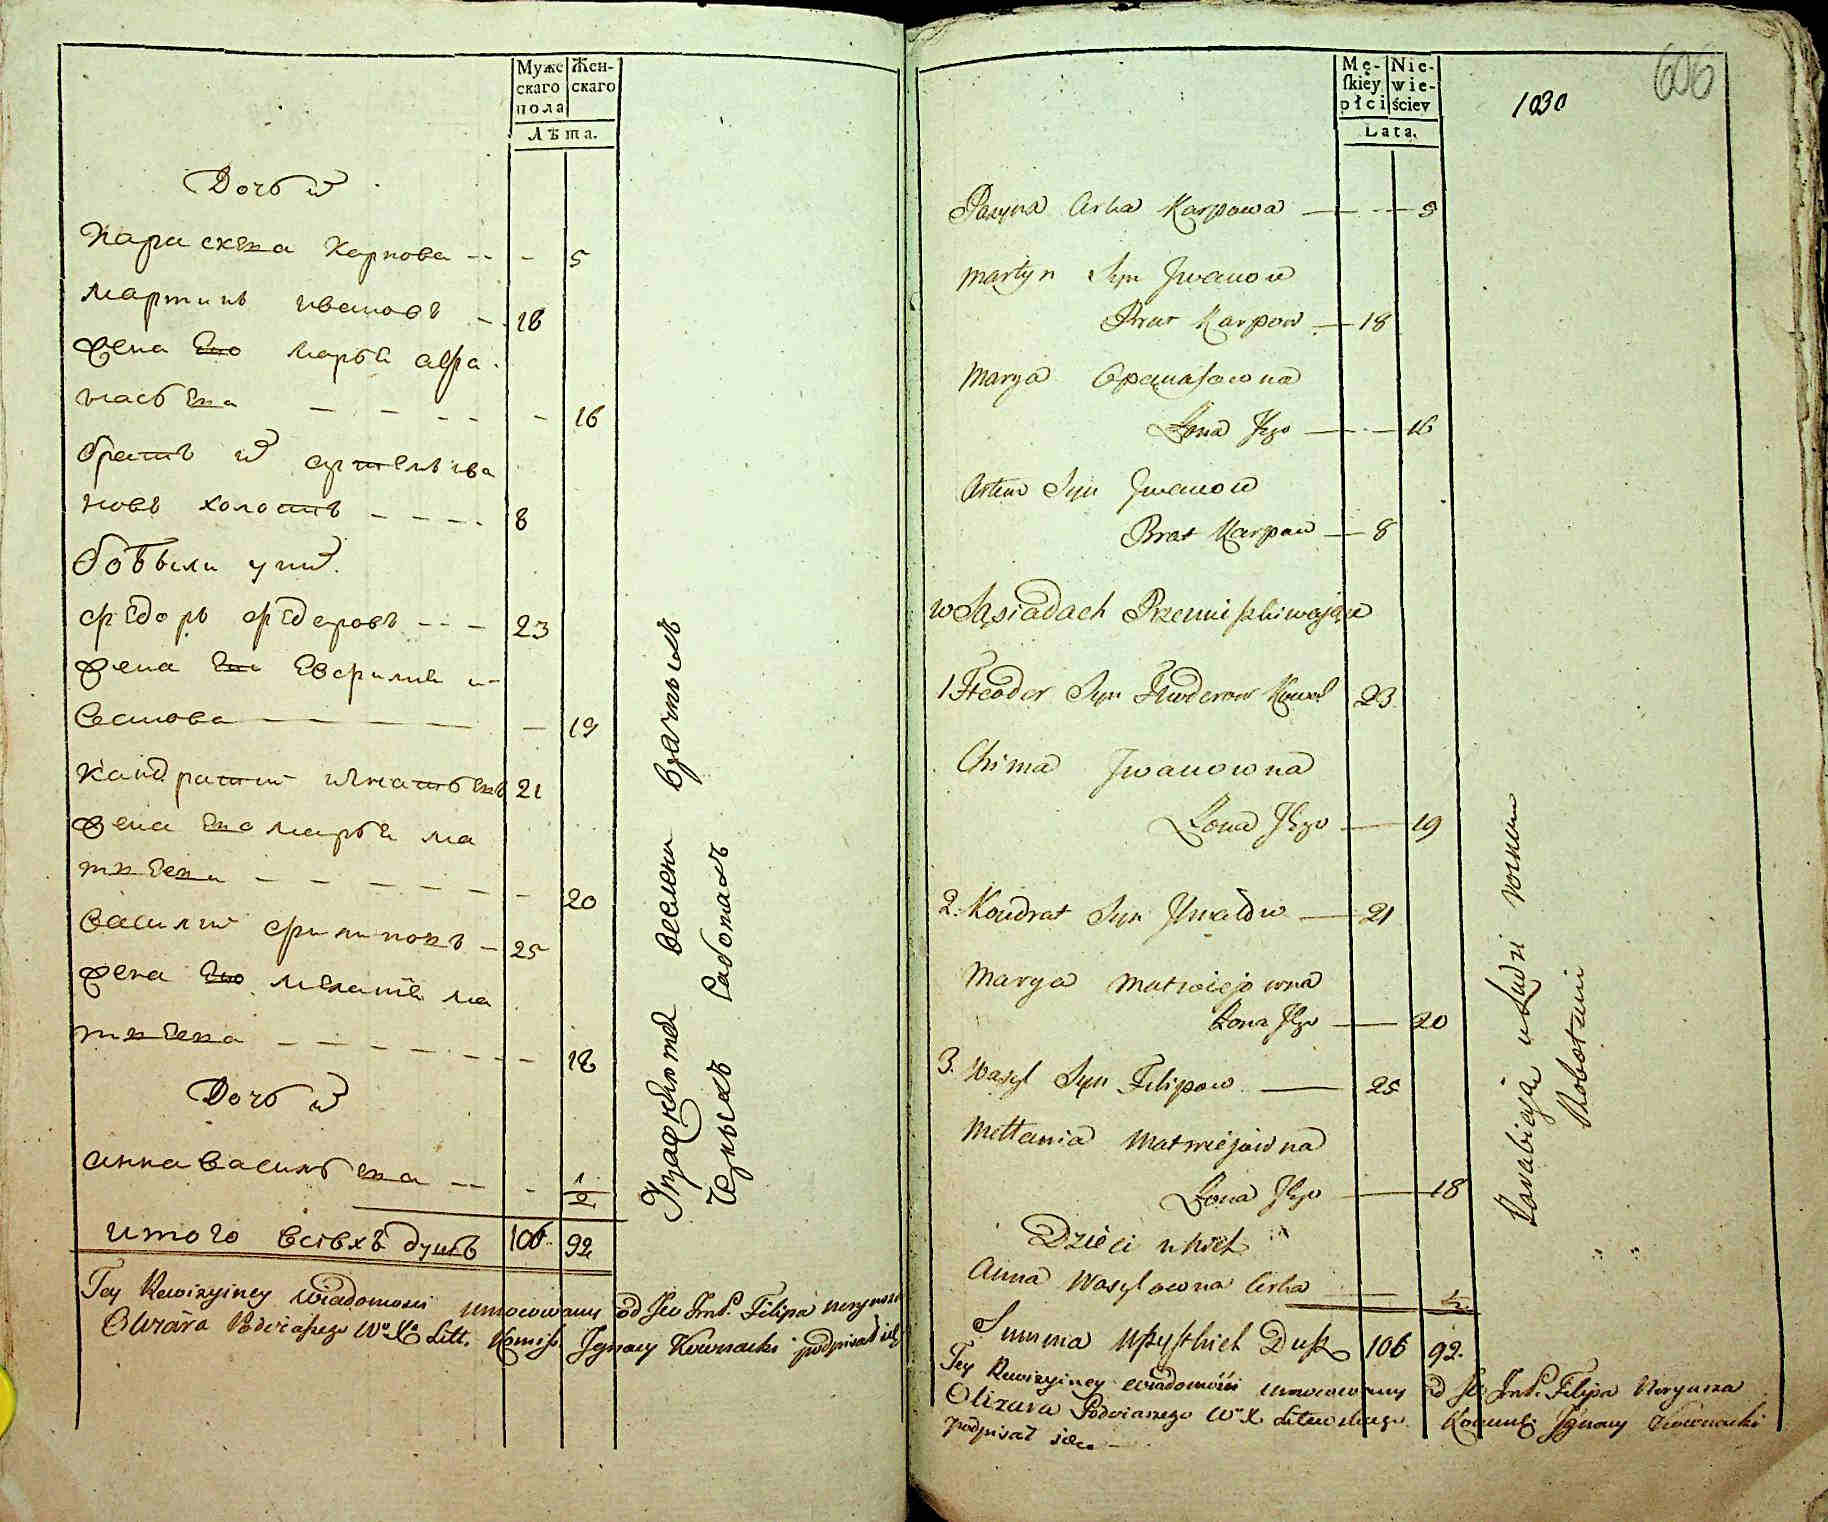 Муже
скаго
пола
Жен-
скаго
Лѣта.
Дочь их
Параскева Карпова -- - 5
Мартинъ ивановъ - 18
жена Ево марья афа
насьева - - - - - 16
братъ их артемъ ива
новъ холостъ - - - - 8
бобыли у них
Федоръ Федоровъ - - - 23
жена Ево Евфимия и
ванова - 19
Кандратий игнатьевъ 21
жена Ево марья ма
твеева - - - - - - - 20
василий филиповъ - 25
жена Ево мелания ма
твеева - - - - - - - 18
Дочь их
анна васильева -- - 1/2
итого всѣхъ душъ 106 92
Tey Rewizyiney wiadomosci umocowany od Jw Jmć. Filipa Neryusza
Olizara Podczaszego Wo Xa Litt. Komiss Ignacy Kownacki podpisał się
работахъ
Mę-
skiéy
płci
Nie-
wie-
ściey
Lata.
1030
606
Paraska Corka Karpowa - 5
Martyn Syn Jwanow
Brat Karpow - 18
Marya Opanasowna
Żona Jego - 16
Artem Syn Jwanow
Brat Karpow - 8
w Sąsiadach Przemieszkiwaiące
1. Fteodor Syn Fteoderow Kowal 23
Chima Jwanowna
Żona Jego - 19
2. Kondrat Syn Jhnatow - 21
Marya Matwiejowna
Żona Jego - 20
3. Wasyl Syn Filipow - 25
Mellania Matwiejowna
Żona Jego - 18
Dzieci u nich
Anna Wasylowna Corka - 1/2
Summa Wszystkich Dusz 106 92.
Tey Rewizyiney wiadomości umocowany od Jw Jmć. Filipa Neryusza
Olizara Podczaszego Wo X Litewskiego Kommiss Ignacy Kownacki
podpisał się
Zarabiają u Ludzi
Robotami